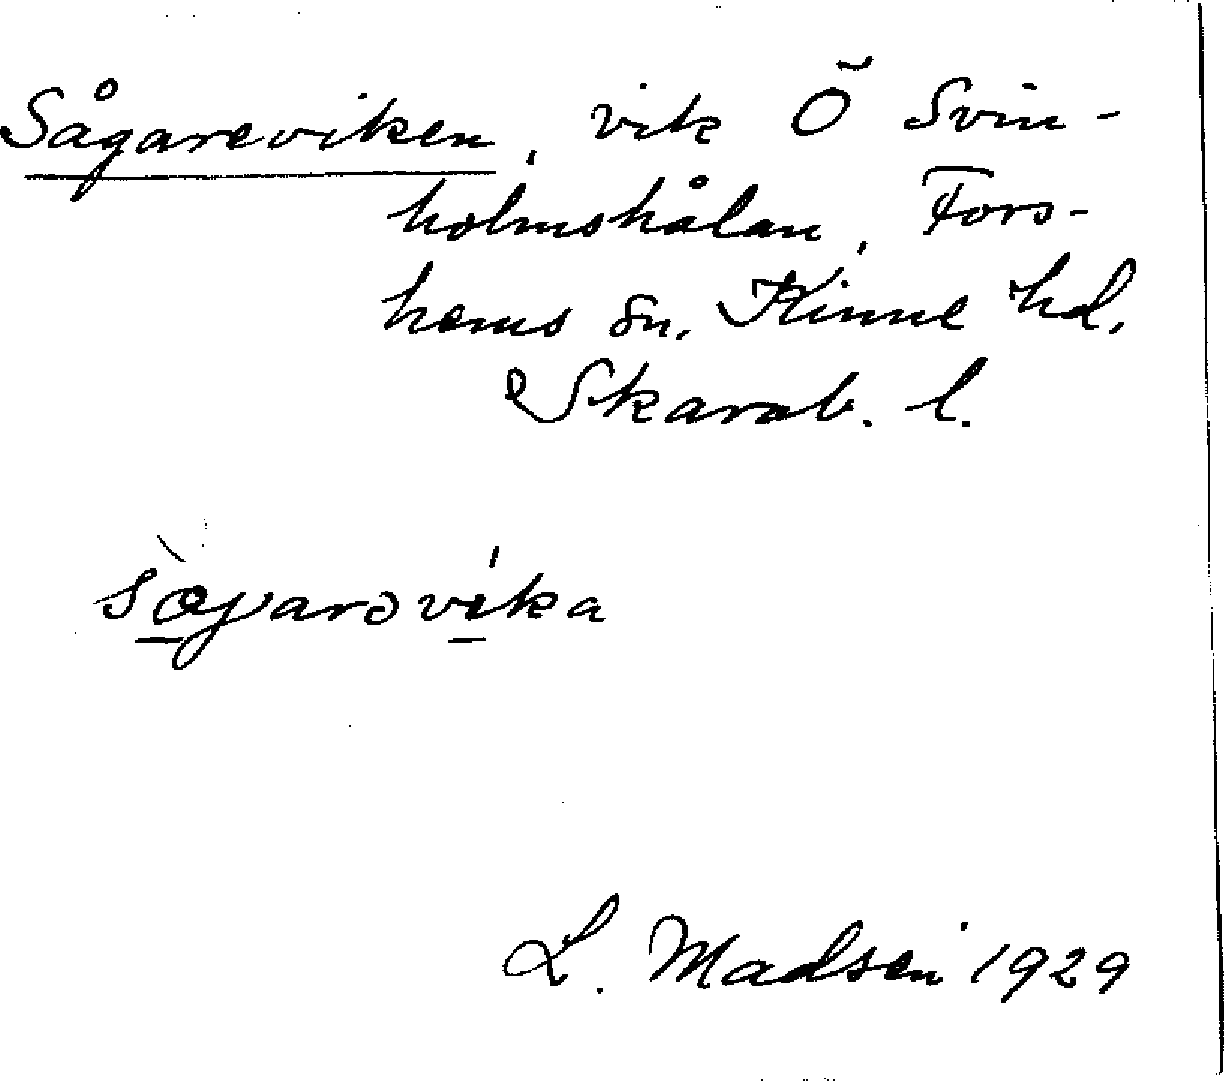 Sågareviken, vik Ö Svin-
holmshålan, Fors-
hems sn. Kinne hd.
Skarab. l.
L. Madsen 1929